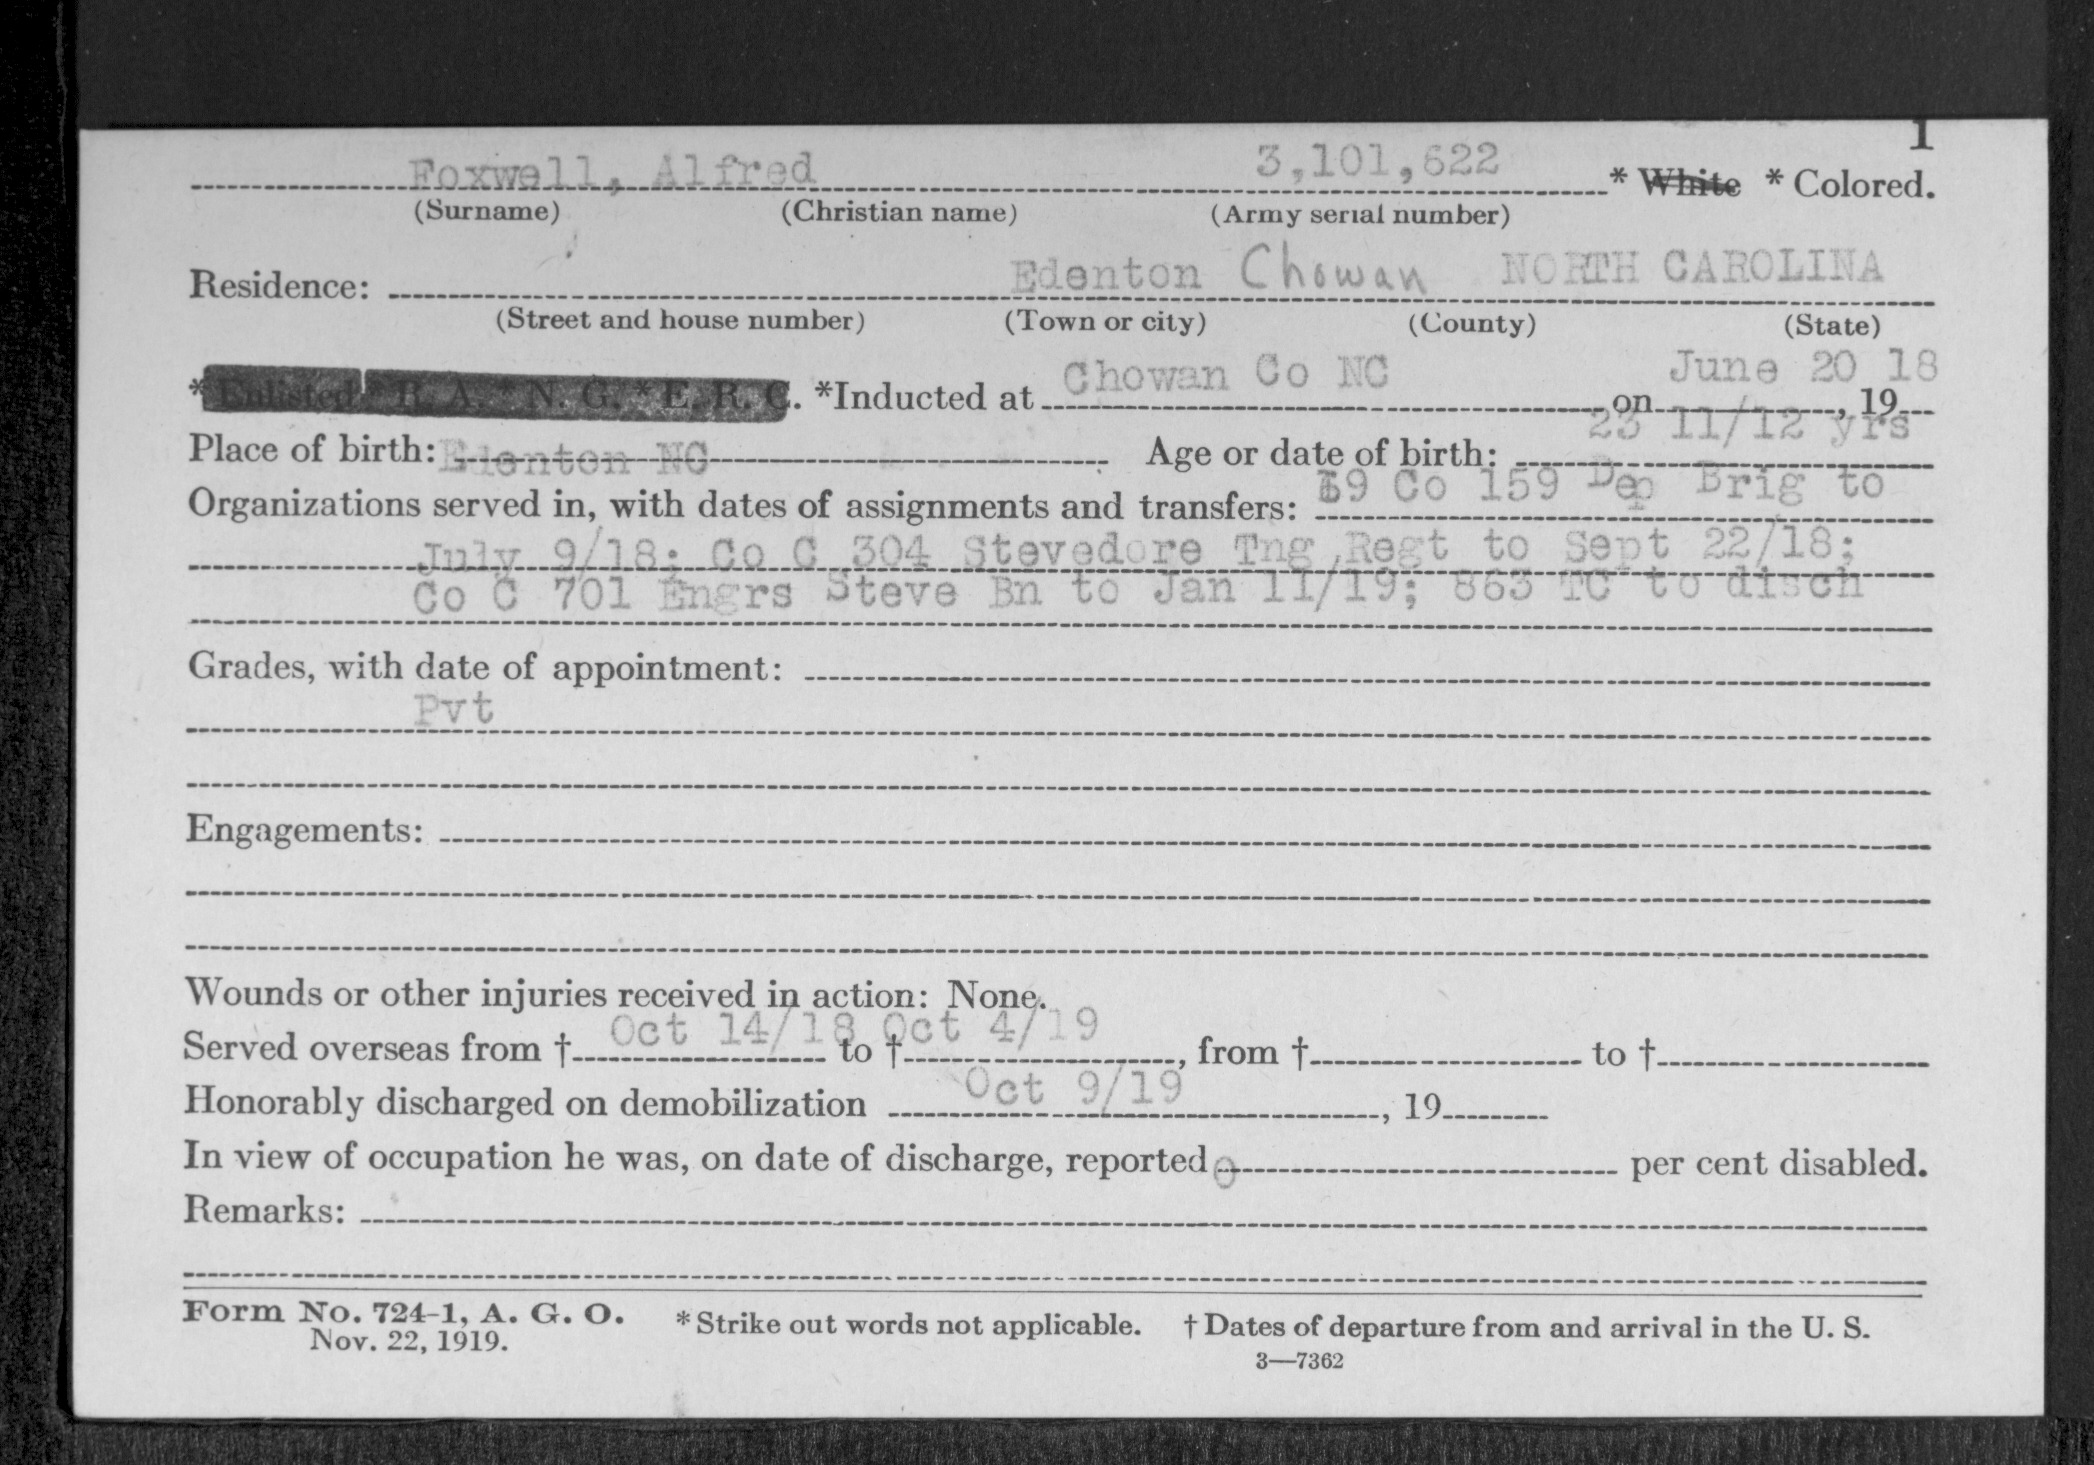 1
Foxwell, Alfred 3,101,622 * White * Colored.
(Surname) (Christian name) (Army serial number)
Residence: Edenton Chowan NORTH CAROLINA
(Street and house number) (Town or city) (County) (State)
*Enlisted * R. A. * N. G. * E. R. C. *Inducted at Chowan Co NC on June 20, 1918
Place of birth: Edenton NC Age or date of birth: 23 11/12 yrs
Organizations served in, with dates of assignments and transfers: Co 159 Dep Brig to
July 9/18; Co C 304 Stevedore Tng Regt to Sept 22/18;
Co C 701 Engrs Steve Bn to Jan 11/19; 863 TC to disch
Grades, with date of appointment:
Pvt
Engagements:
Wounds or other injuries received in action: None.
Served overseas from † Oct 14/18 to † Oct 4/19, from † to †
Honorably discharged on demobilization Oct 9/19, 19
In view of occupation he was, on date of discharge, reported 0 per cent disabled.
Remarks:
Form No. 724-1, A. G. O. *Strike out words not applicable. † Dates of departure from and arrival in the U. S.
Nov. 22, 1919.
3—7362